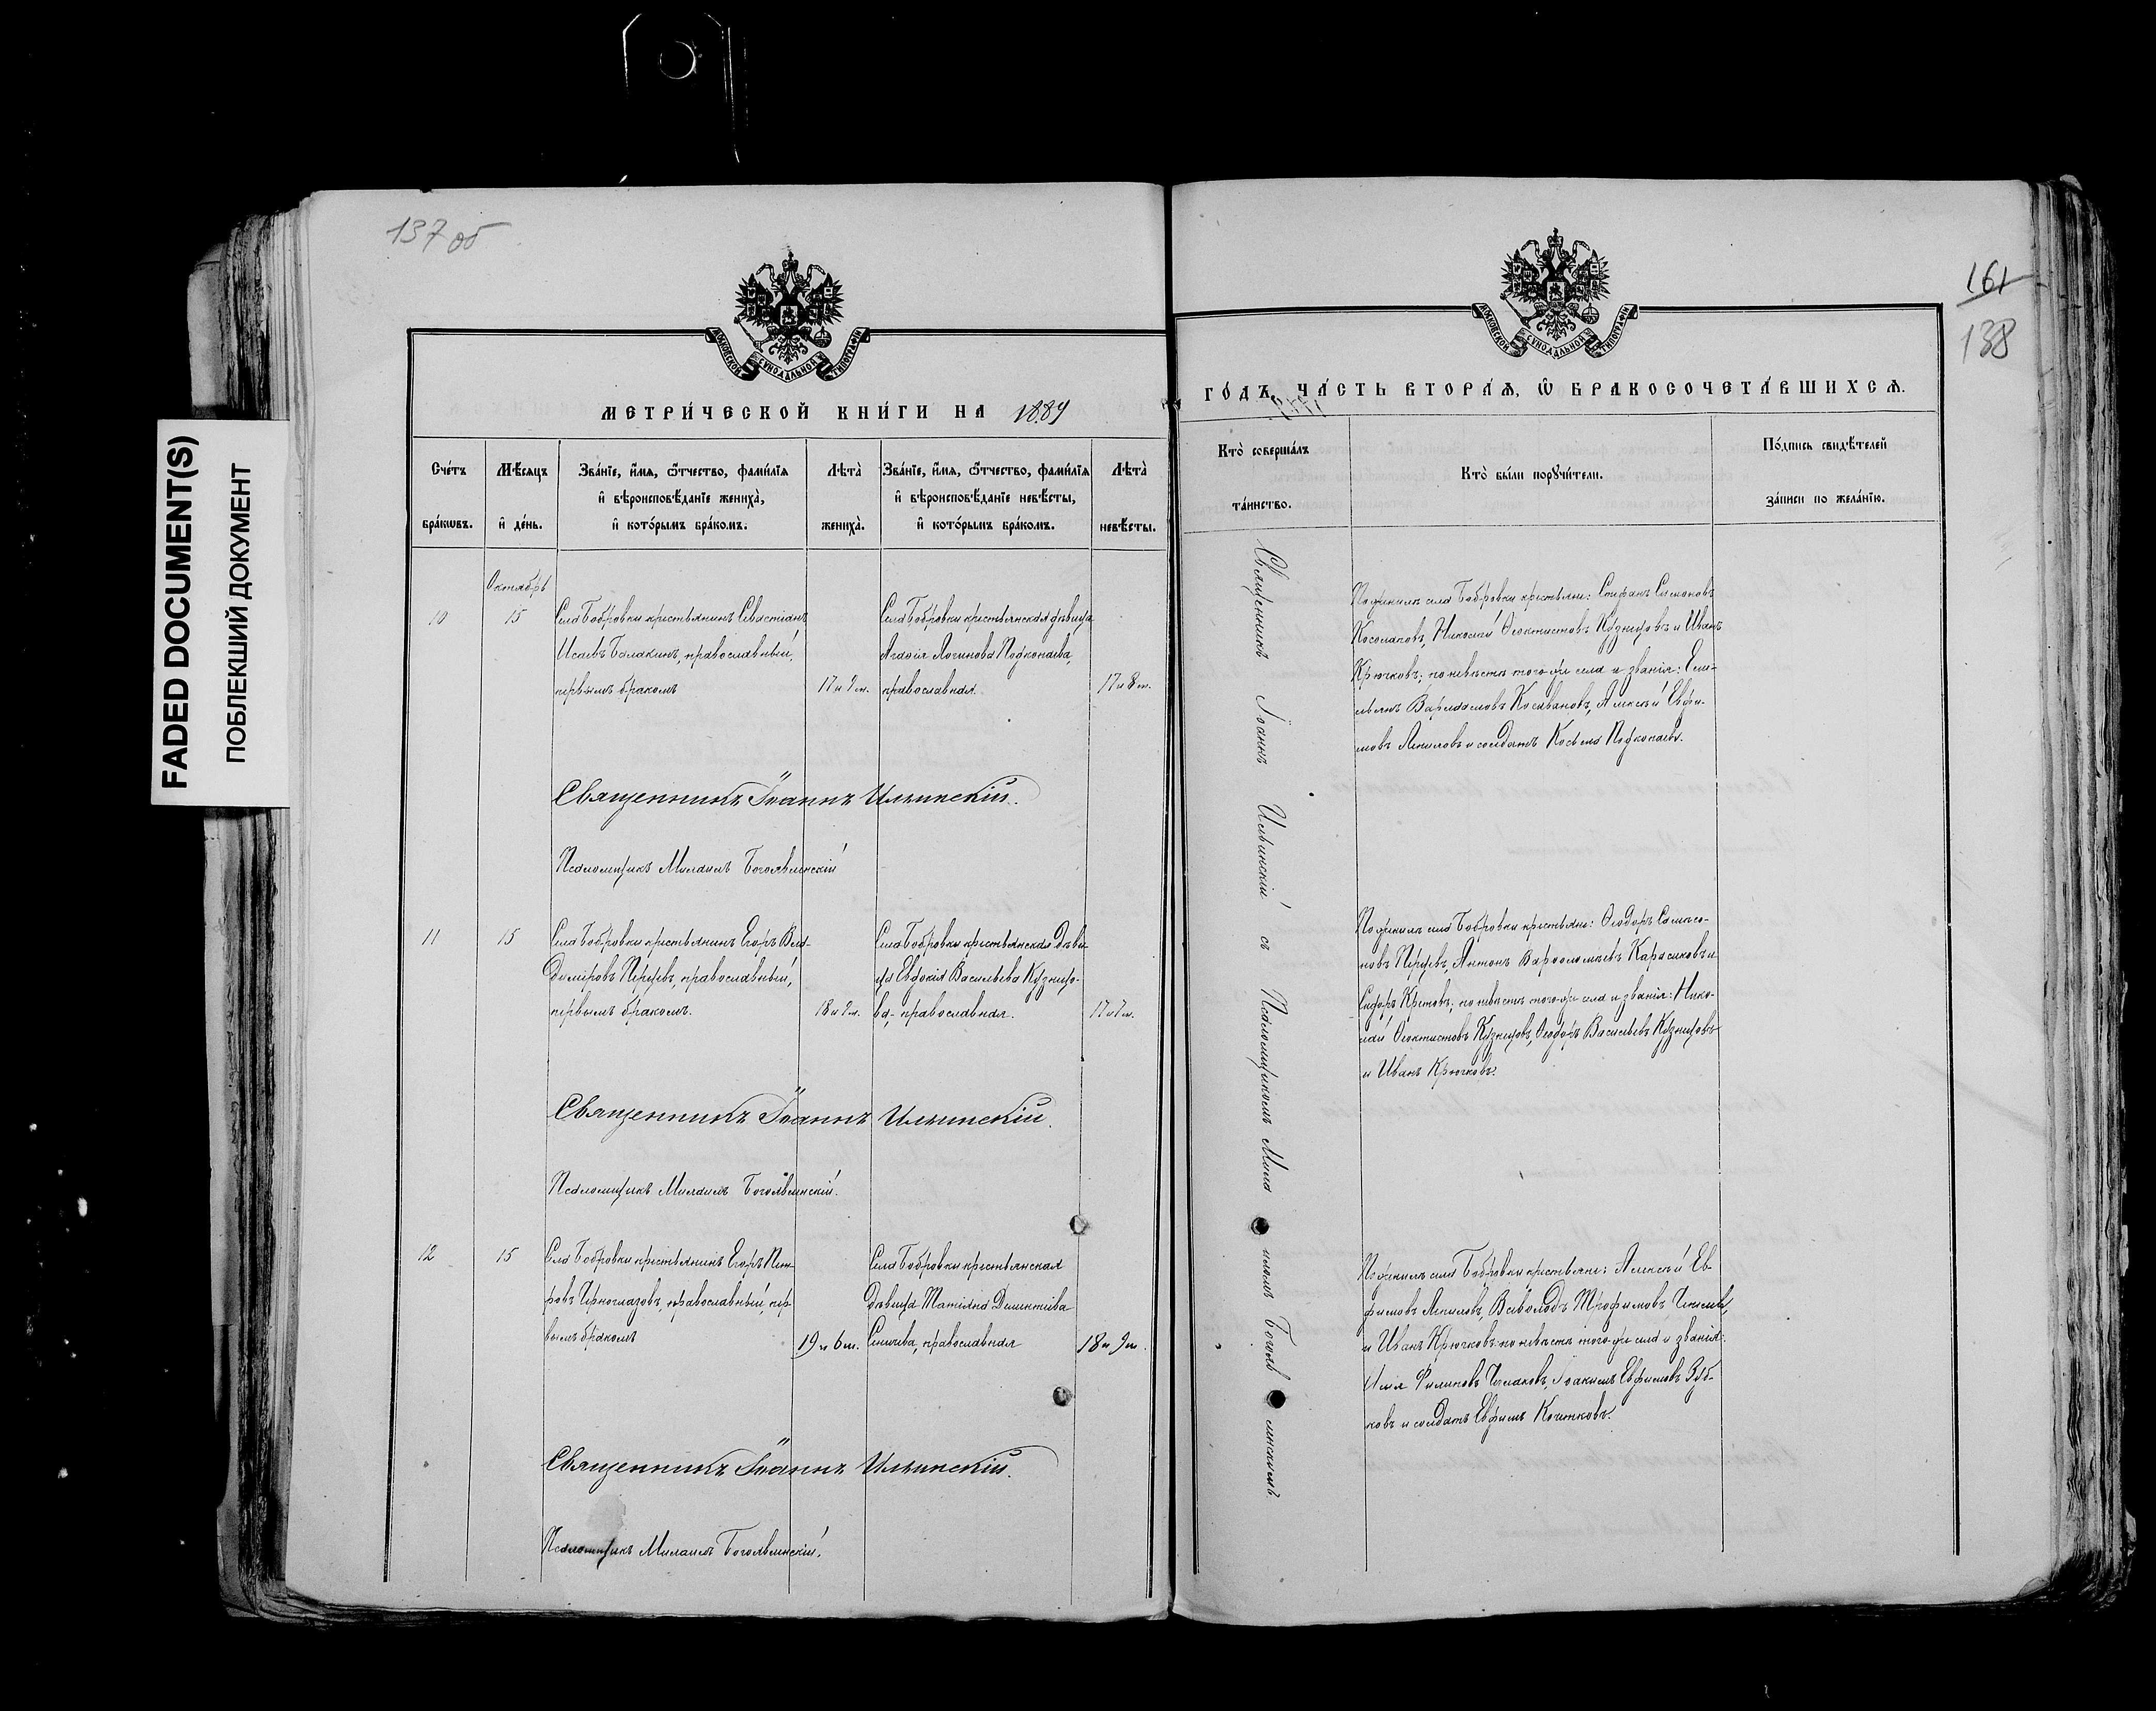 137 об
161
138
FADED DOCUMENT(S)
ПОБЛЕКШИЙ ДОКУМЕНТ
МОСКОВСКОЙ СѴНОДАЛЬНОЙ ТИПОГРАФІИ
МОСКОВСКОЙ СѴНОДАЛЬНОЙ ТИПОГРАФІИ
МЕТРИ́ЧЕСКОЙ КНИ́ГИ НА 1889
ГО́ДЪ, ЧА́СТЬ ВТОРА́Ѧ, Ѽ БРАКОСОЧЕТА́ВШИХСѦ.
Сче́тъ бра́кωвъ.
Мѣ́сяцъ и҆ де́нь.
Зва́нїе, и҆́мѧ, ѻ҆́тчество, фами́лїѧ
и҆ вѣроисповѣ́данїе жениха̀,
и҆ кото́рымъ бра́комъ.
Лѣта̀ жениха̀.
Зва́нїе, и҆́мѧ, ѻ҆́тчество, фами́лїѧ
и҆ вѣроисповѣ́данїе невѣ́сты,
и҆ кото́рымъ бра́комъ.
Лѣта̀ невѣ́сты.
Кто̀ соверша́лъ
та́инство.
Кто̀ бы́ли порꙋчи́тели.
По́дпись свидѣ́телей
за́писи по жела́нїю.
Октябрь
10 15 Села Бобровки крестьянинъ Севастіанъ
Исаевъ Балакинъ, православный,
первымъ бракомъ
17 и 9 м.
Села Бобровки крестьянская дѣвица
Агафія Логинова Подкопаева,
православная
17 и 8 м.
По женихѣ села Бобровки крестьяне: Стефанъ Симоновъ
Косолаповъ, Николай Ѳеоктистовъ Кузнецовъ и Иванъ
Крючковъ; по невѣстѣ того же села и званія: Еме-
льянъ Варлаамовъ Косивановъ, Алексѣй Евфи-
мовъ и солдатъ Косьма Подкопаевъ.
Священникъ Іоаннъ Ильинскій.
Псаломщикъ Михаилъ Богоявленскій
11 15 Села Бобровки крестьянинъ Егоръ Вла-
диміровъ Перцевъ, православный,
первымъ бракомъ.
18 и 9 м.
Села Бобровки крестьянская дѣви-
ца Евдокія Васильева Кузнецо-
ва, православная.
17 и 7 м.
По женихѣ села Бобровки крестьяне: Ѳеодоръ Самсо-
новъ Перцевъ, Антонъ Варѳоломеевъ Карасиковъ и
Сидоръ; по невѣстѣ того же села и званія: Нико-
лай Ѳеоктистовъ Кузнецовъ, Ѳеодоръ Васильевъ Кузнецовъ
и Иванъ Крючковъ.
Священникъ Іоаннъ Ильинскій.
Псаломщикъ Михаилъ Богоявленскій.
12 15 Села Бобровки крестьянинъ Егоръ Пет-
ровъ Черноглазовъ, православный, пер-
вымъ бракомъ
19 и 6 м.
Села Бобровки крестьянская
дѣвица Татіана Дементіева
православная
18 и 9 м.
По женихѣ села Бобровки крестьяне: Алексѣй Ев-
фимовъ, Всеволодъ Трофимовъ
и Иванъ Крючковъ; по невѣстѣ того же села и званія:
Илія Филиповъ Чолаковъ, Іоакимъ Евфимовъ Зуб-
ковъ и солдатъ Евфимъ Кочетковъ.
Священникъ Іоаннъ Ильинскій.
Псаломщикъ Михаилъ Богоявленскій.
Священникъ Іоаннъ Ильинскій съ Псаломщикомъ Михаиломъ Богоявленскимъ.